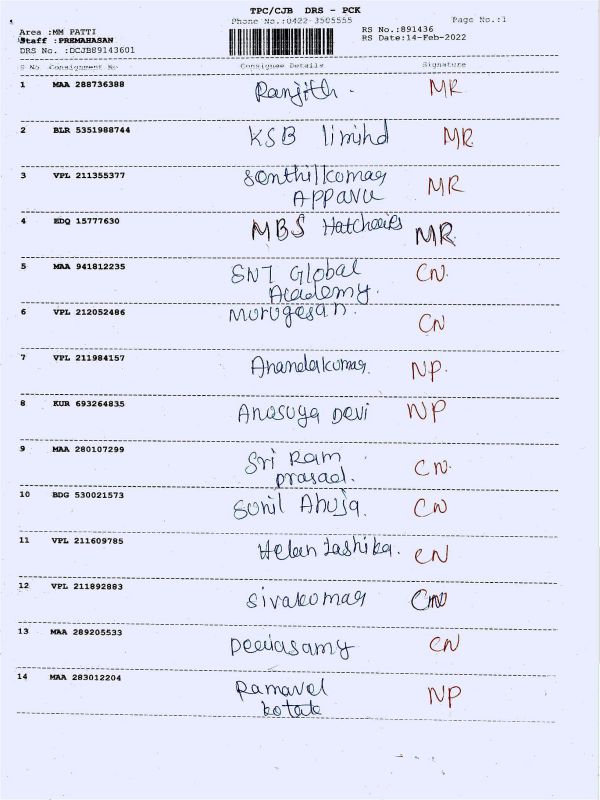 TPC/CJB DRS - PCK
Phone No.:0422-3505555 Page No.:1
Area :MM PATTI RS No.:891436
Staff :PREMAHASAN RS Date:14-Feb-2022
DRS No. :DCJB89143601
S No Consignment No Consignee Details Signature
1 MAA 288736388 Ranjith. MR
2 BLR 5351988744 KSB limihd MR
3 VPL 211355377 Senthilkumar MR
APPAVU
4 EDQ 15777630 MBS Hatcheries MR
5 MAA 941812235 SNT Global CN.
Academy.
6 VPL 212052486 Murugesan. CN
7 VPL 211984157 Anandakumar. NP.
8 KUR 693264835 Anasuya Devi NP
9 MAA 280107299 Sri Ram CN.
prasad.
10 BDG 530021573 Sunil Ahuja. CN
11 VPL 211609785 Helan CN
12 VPL 211892883 Sivakumar CN
13 MAA 289205533 CN
14 MAA 283012204 Ramavel NP
kotak